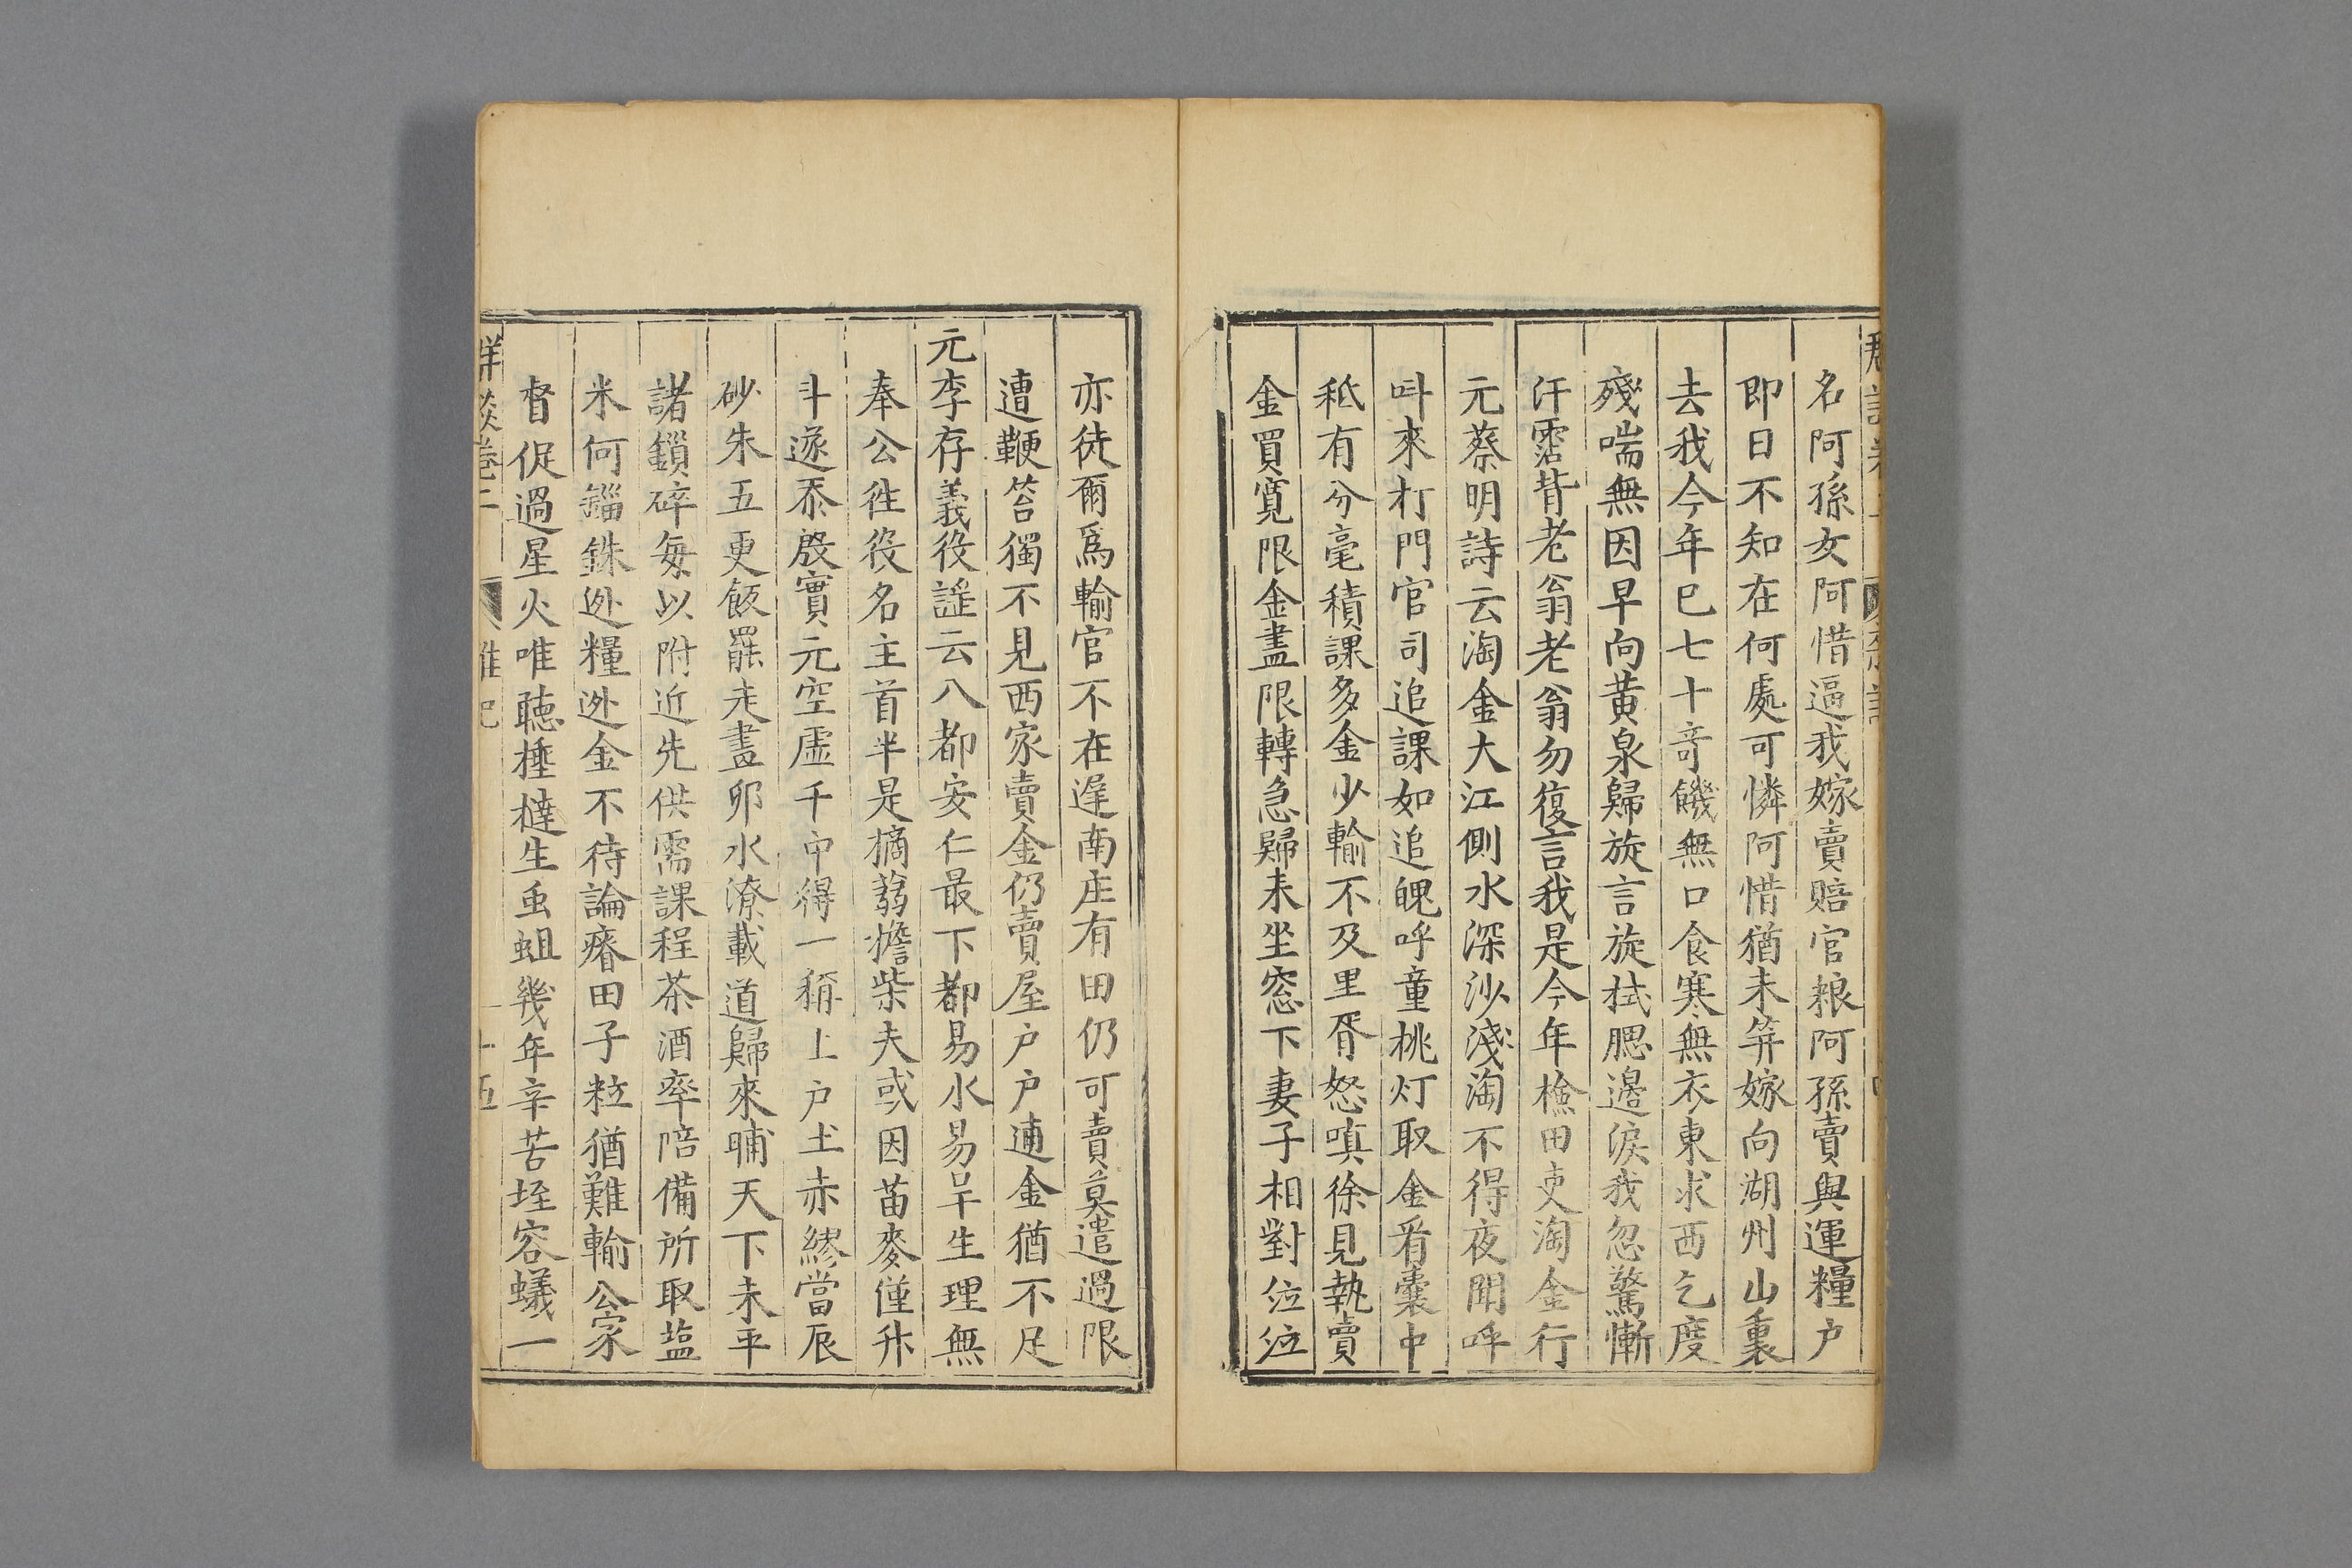 名阿孫女阿惜逼我嫁賣賠官粮阿孫賣與運糧户
即日不知在何處可憐阿惜猶未笄嫁向湖州山裏
去我今年已七十竒饑無口食寒無衣東求西乞度
殘喘無因早向黄泉歸旋言旋拭腮邊淚我忽驚慚
汗霑背老翁老翁勿復言我是今年檢田吏淘金行
元蔡明詩云淘金大江側水深沙淺淘不得夜聞呼
呌來打門官司追課如追魄呼童桃灯取金看囊中
秪有分毫積課多金少輸不及里胥怒嗔徐見執賣
金買寬限金盡限轉急歸未坐窓下妻子相對泣泣
亦徒爾爲輸官不在遅南庄有田仍可賣莫遣過限
遭鞭笞獨不見西家賣金仍賣屋户户逋金猶不足
元李存義役謡云八都安仁最下都易水易旱生理無
奉公徃役名主首半是摘蒭擔柴夫或因苗麥僅升
斗遂忝殷實元空虚千中得一稱上户丈赤繆當辰
砂朱五更飯罷走盡卯水潦載道歸來晡天下未平
諸鎻碎每以附近先供需課程茶酒率陪備所取盐
米何錙銖逊糧逊金不待論瘠田子粒猶難輸公家
督促過星火唯聽捶撻生虱蛆幾年辛苦垤容蟻一
羣談卷二　雜記　十五